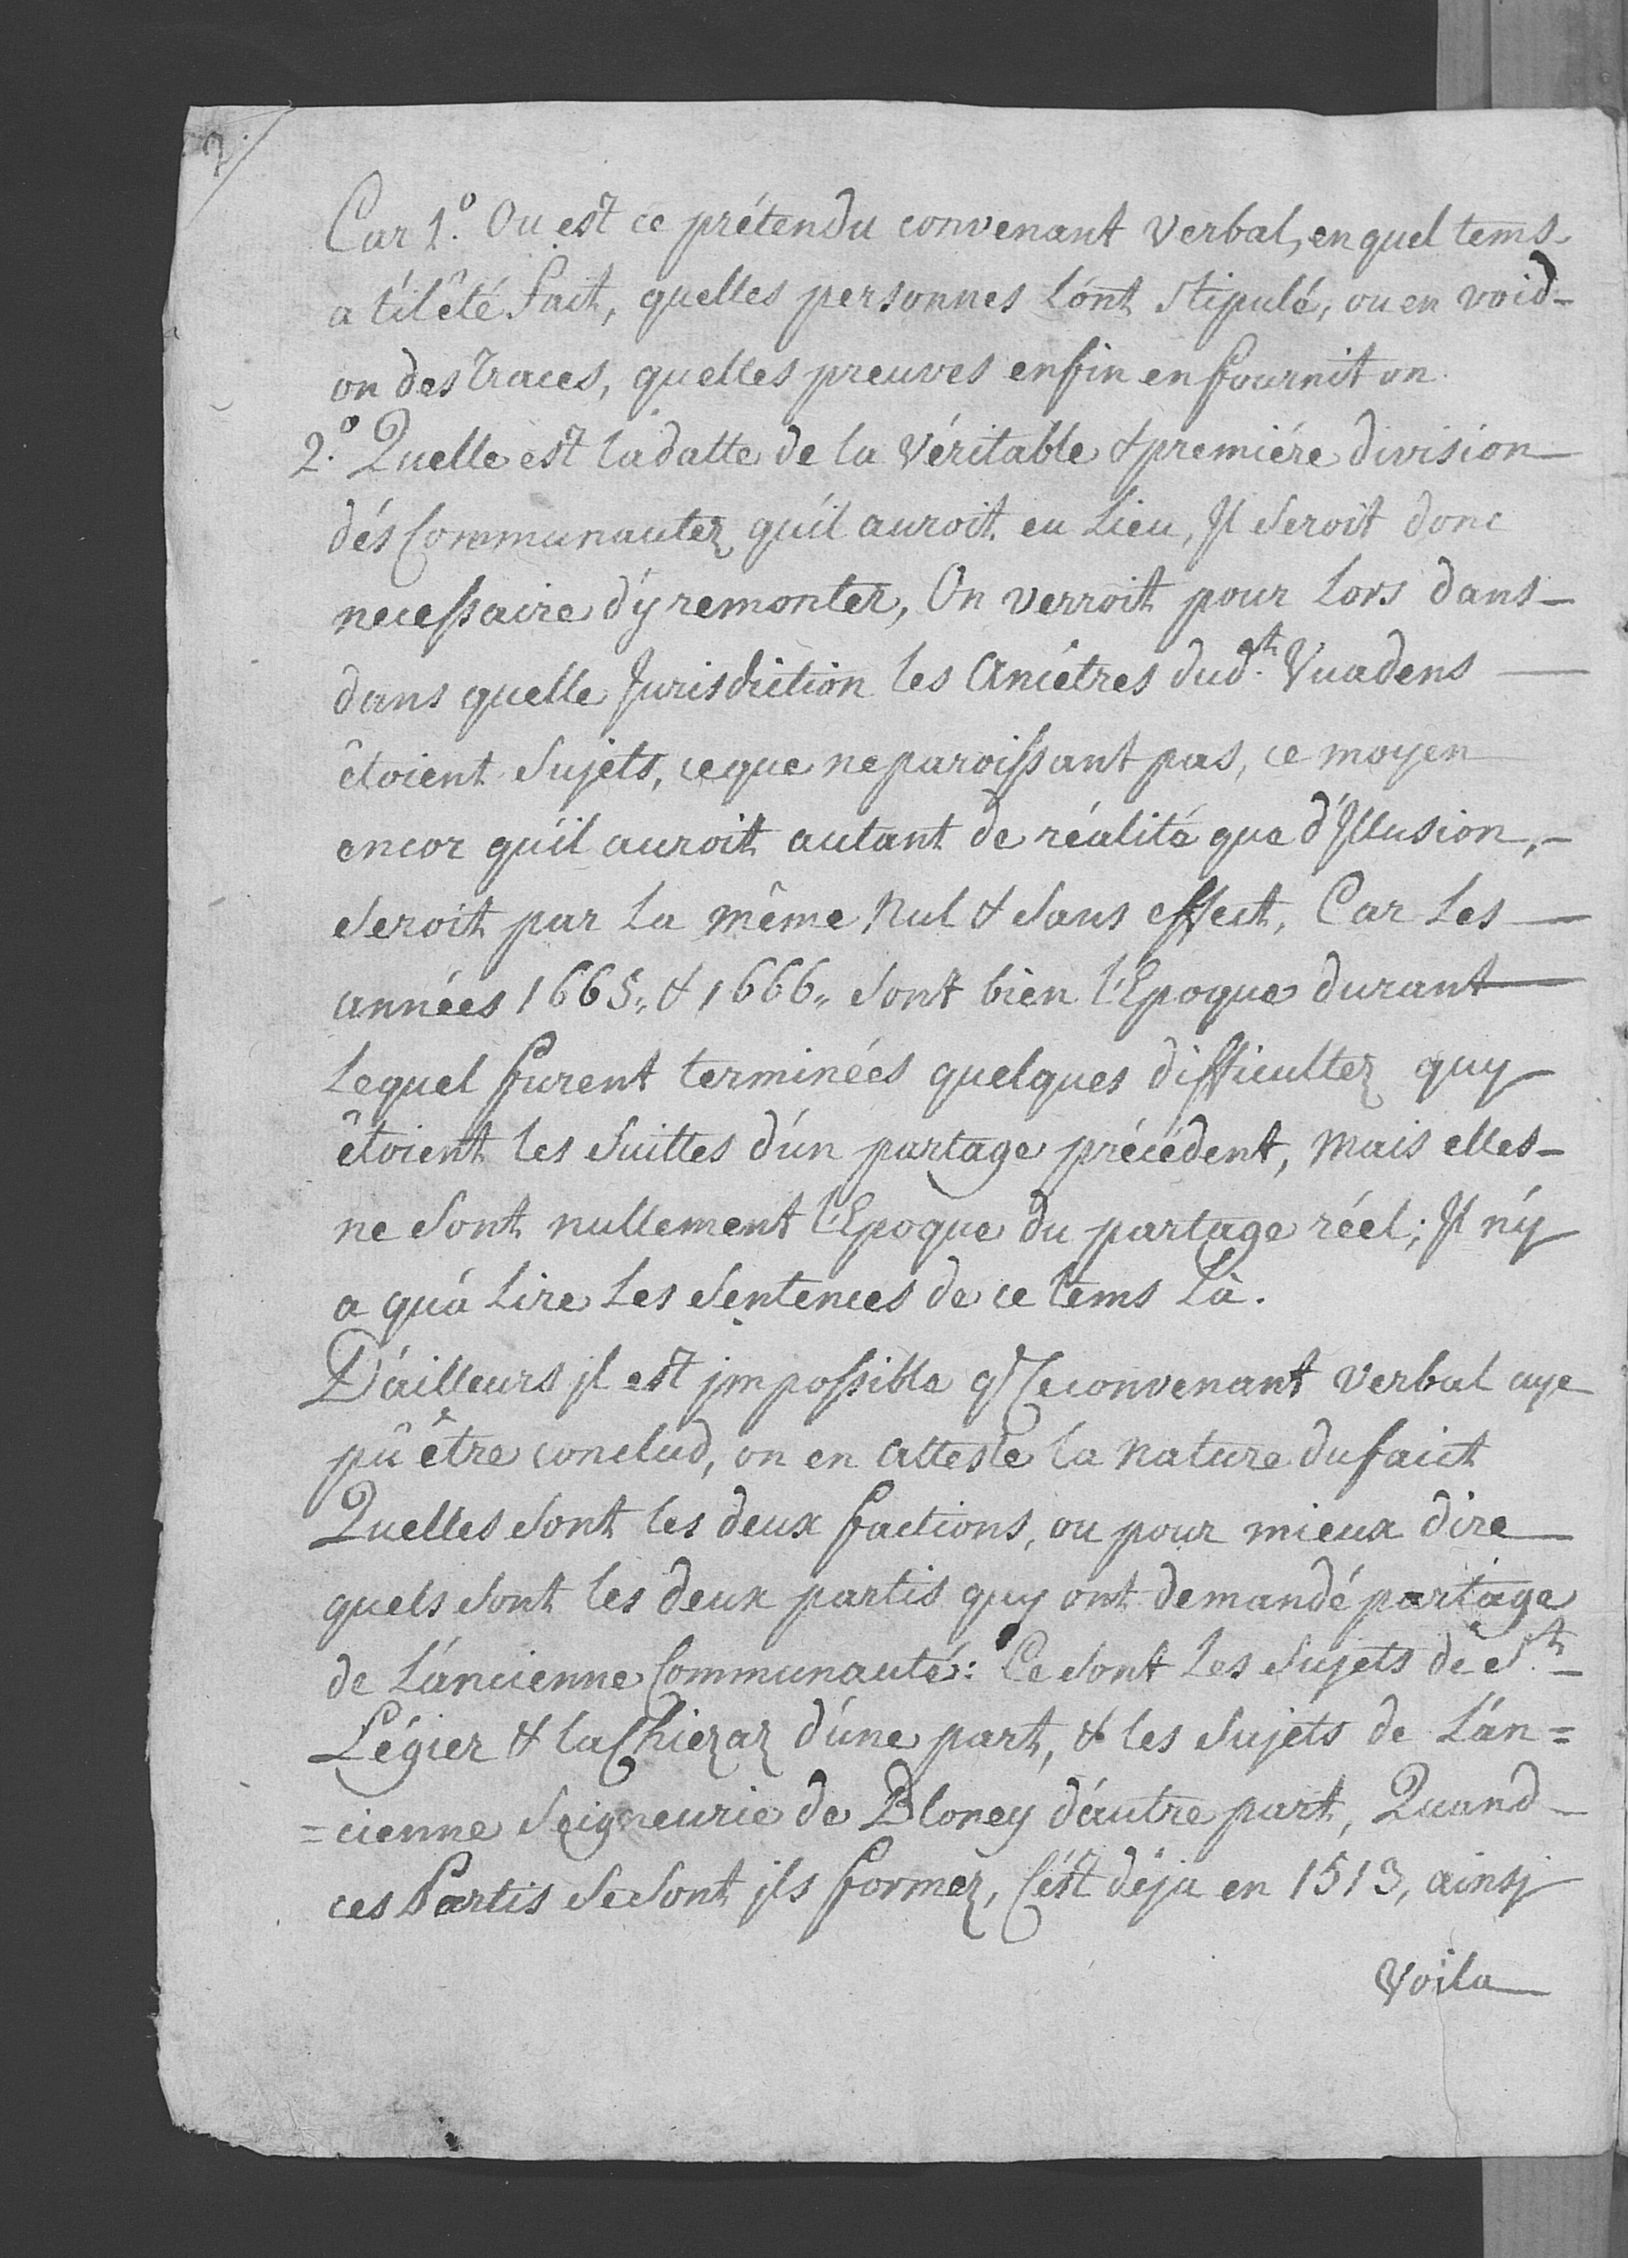 2.
Car 1.º Ou est ce prétendu convenant verbal, en quel tems
a t'il êté fait, quelles personnes l'ont stipulé, ou en void-
on des traces, quelles preuves enfin en fournit on
2.º Quelle est la datte de la véritable & premiére division
dés Communautez qu'il auroit eu lieu, Il seroit donc
necessaire d'y remonter, On verroit pour lors dans
dans quelle Jurisdiction les Ancétres dud.t Vuadens
êtoient sujets, ce que ne paroissant pas, ce moyen
encor qu'il auroit autant de réalité que d'Illusion,
seroit par la même Nul & sans effect, Car les
années 1665,, & 1666,, sont bien l'Epoque durant
lequel furent terminées quelques difficultez quy
êtoient les suittes d'un partage précédent, mais elles
ne sont nullement l'Epoque du partage réel; Il n'y
a qu'a lire les sentences de ce tems là.
D'ailleurs jl est jmpossible q̃ ce convenant verbal aye
pû être conclud, on en atteste la nature du faict
Quelles sont les deux factions, ou pour mieux dire
quels sont les deux partis quy ont demandé partage
de l'ancienne Communauté: Ce sont les sujets de S.t
Légier & la Chiezaz d'une part, & les sujets de l'an=
=cienne Seigneurie de Bloney d'autre part, Quand
ces Partis se sont jls formez, C'est déja en 1513, ainsj
Voila